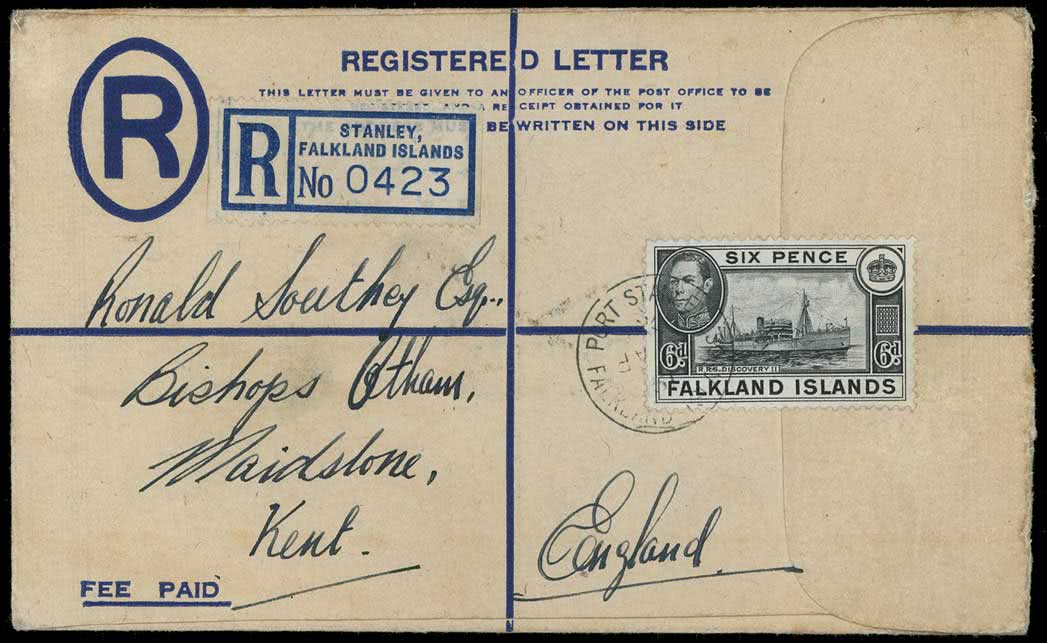 REGISTERED LETTER
THIS LETTER MUST BE GIVEN TO AN OFFICER OF THE POST OFFICE TO BE
AND A RECEIPT OBTAINED FOR IT
BE WRITTEN ON THIS SIDE
R
R
STANLEY,
FALKLAND ISLANDS
No 0423
Ronald Southey Esq.,
Bishops Otham,
Maidstone,
Kent.
England
FEE PAID
SIX PENCE
6d 6d
R.R.S. DISCOVERY II
FALKLAND ISLANDS
PORT STA
FALKLAND